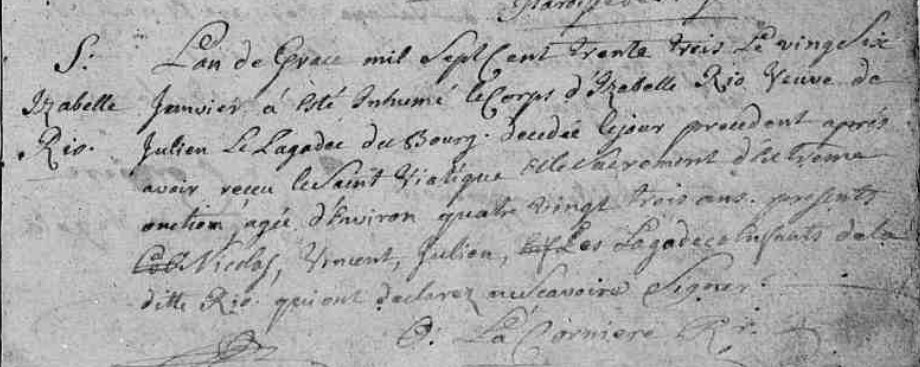 S:
Izabelle
Rio.
L'an de Grace mil Sept Cent trente trois Le vingt Six
Janvier á Esté Inhumé le Corps d'Izabelle Rio Veuve de
Julien Le Lagadec du Bourg. decedée le jour precedent aprés
avoir receu le Saint Viatique et le Sacrement d'Extreme
onction, agée d'Environ quatre vingt trois ans. presents
Nicolas, Vincent, Julien, Les Lagadecs Enfants de la
ditte Rio. qui ont declarez ne Scavoire Signer.
La Corniere Rr.